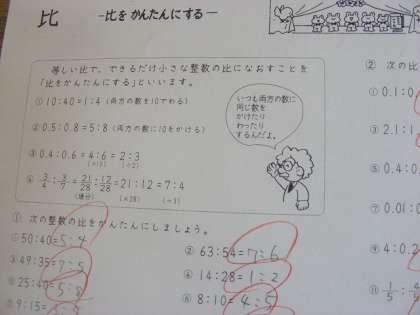 比 -比を かんたんにする-
等しい比で、できるだけ小さな整数の比になおすことを
「比をかんたんにする」といいます。
①10:40=1:4 (両方の数を10でわる)
②0.5:0.8=5:8 (両方の数に10をかける)
③0.4:0.6=4:6=2:3
(×10) (÷2)
④3/4:3/7=21/28:12/28=21:12=7:4
(通分) (×28) (÷3)
いつも両方の数に
同じ数を
かけたり
わったり
するんだよ。
① 次の整数の比をかんたんにしましょう。
①50:40=5:4
②63:54=7:6
③49:35=7:5
④14:28=1:2
⑤25:40=5:8
⑥8:10=4:5
⑦9:15=
② 次の
①0.1:0.
③2.1:1
⑤0.4:
⑦0.01:0
⑨4:0.2
⑪1/5:4